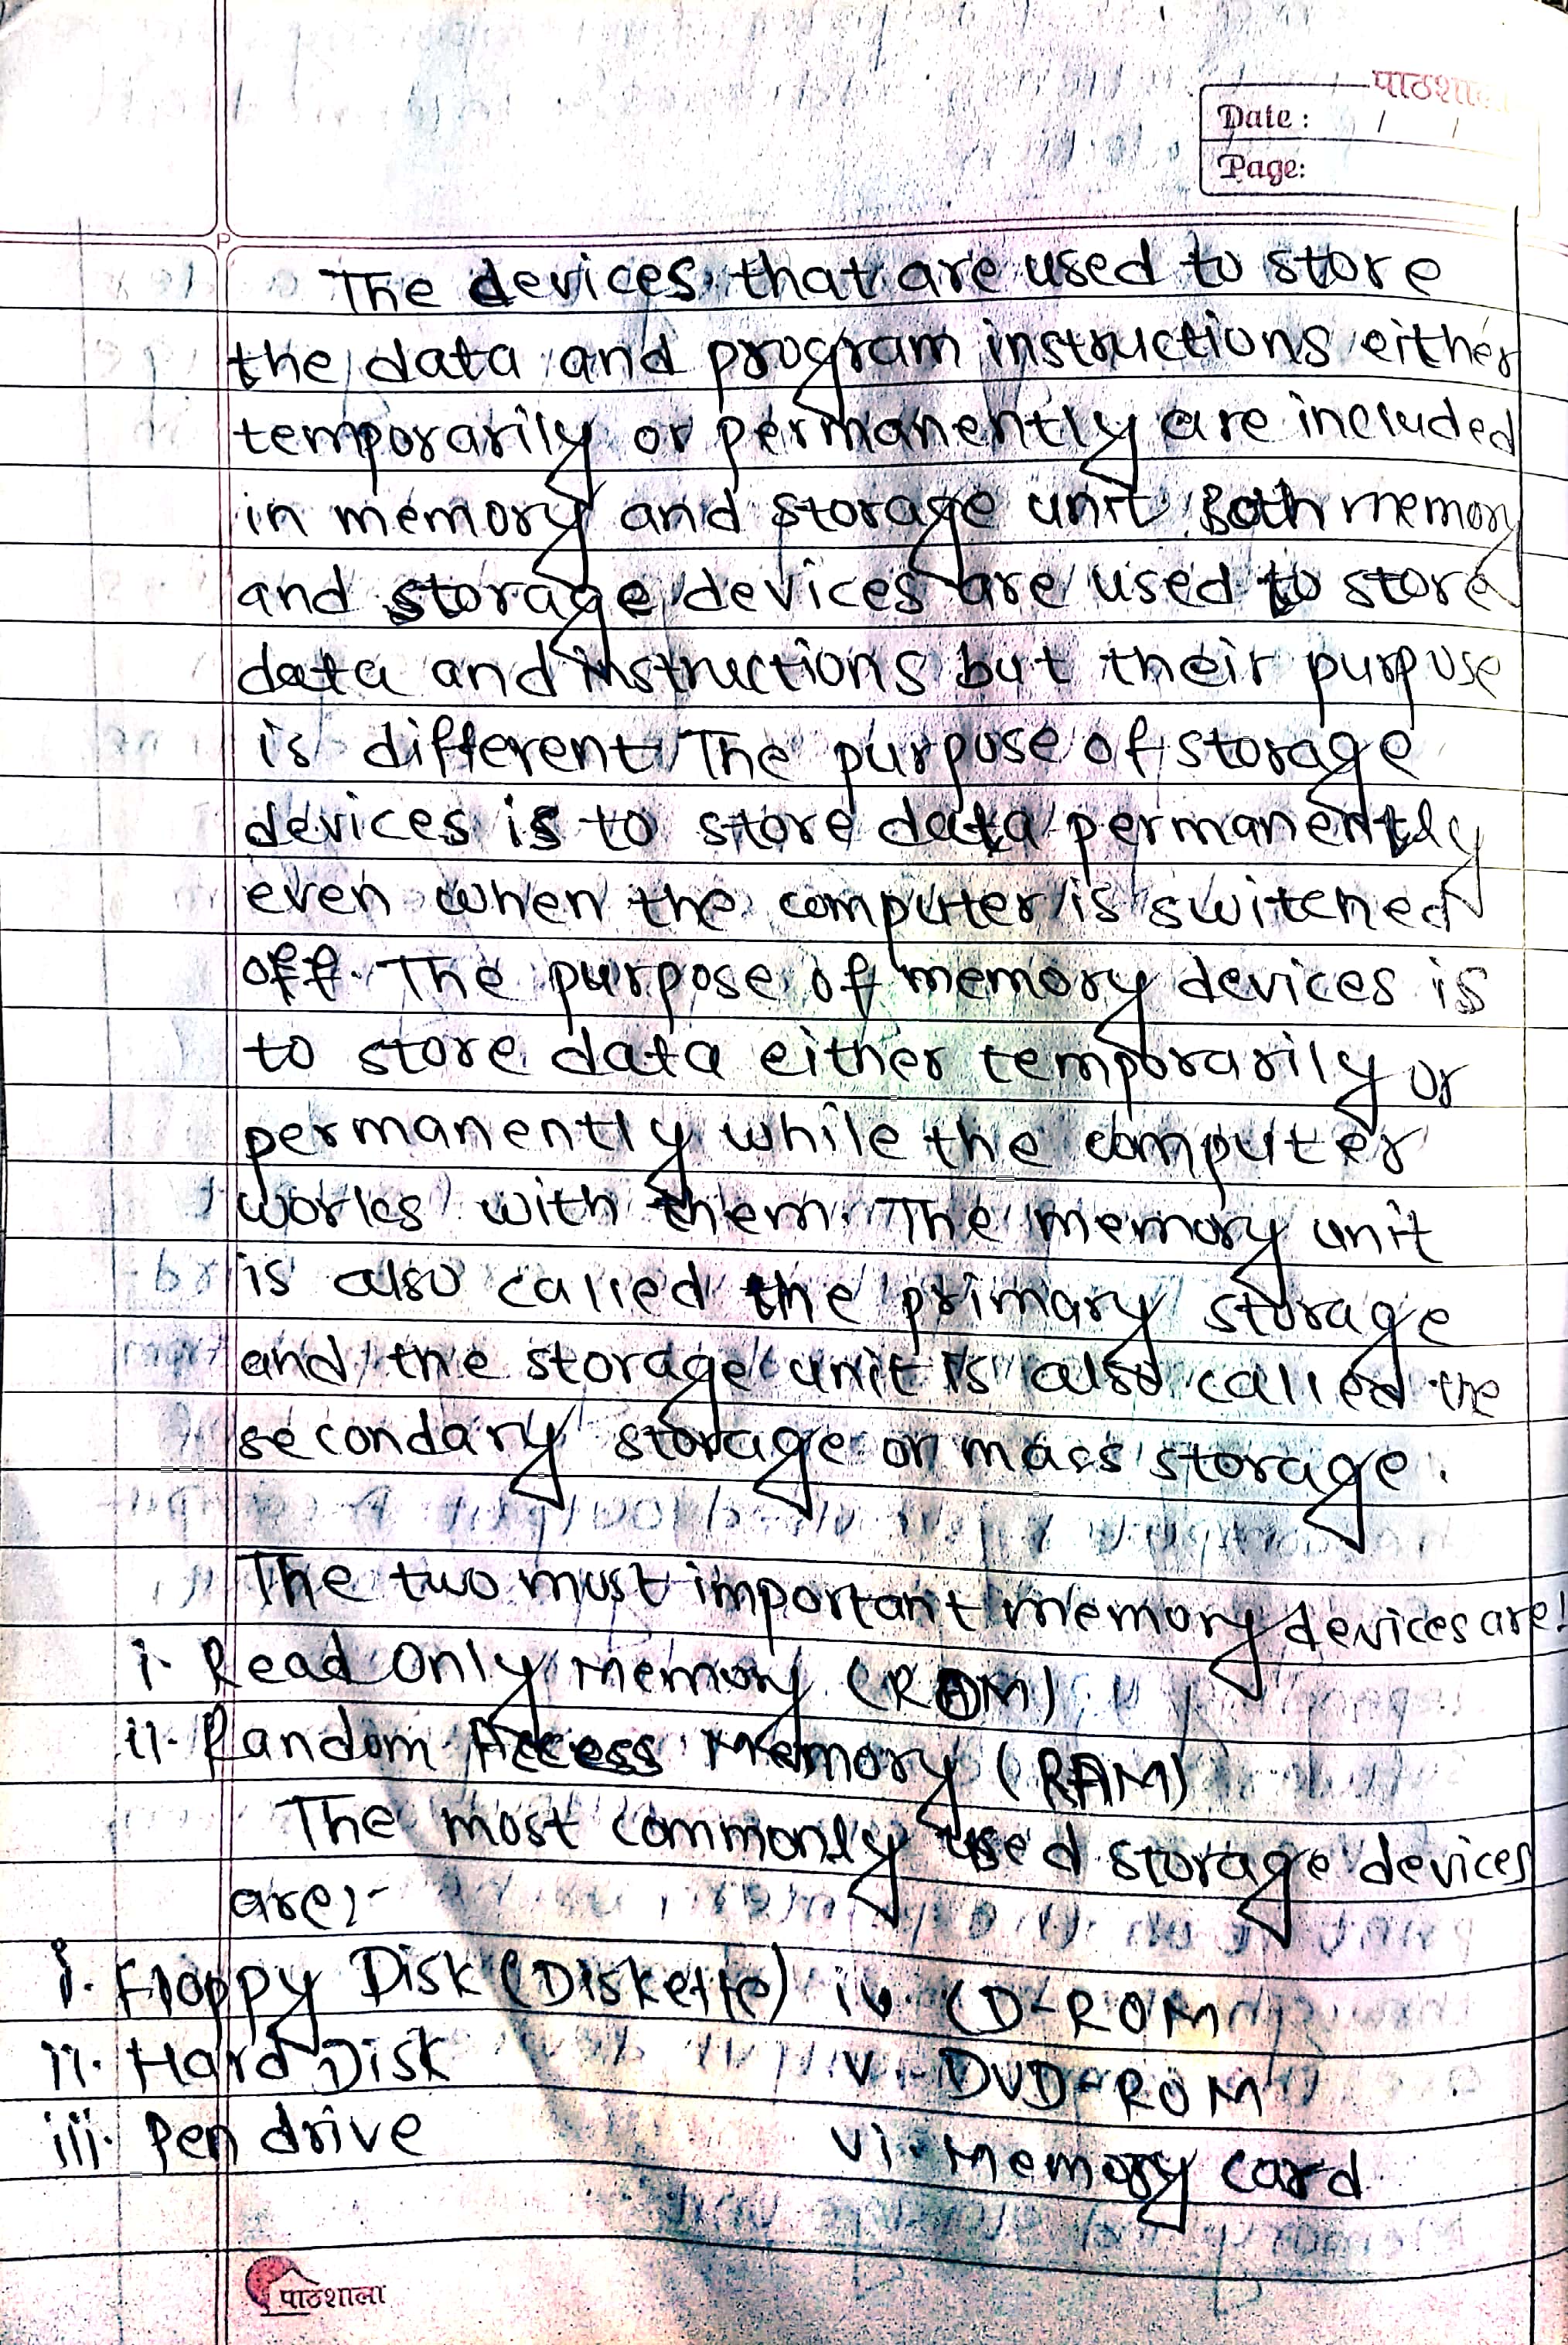 पाठशाला
Date : / /
Page:
The devices that are used to store
the data and program instructions either
temporarily or permanently are included
in memory and storage unit. Both memory
and storage devices are used to store
data and instructions but their purpose
is different. The purpose of storage
devices is to store data permanently
even when the computer is switched
off. The purpose of memory devices is
to store data either temporarily or
permanently while the computer
works with them. The memory unit
is also called the primary storage
and the storage unit is also called the
secondary storage or mass storage.
The two most important memory devices are:
i. Read Only Memory (ROM)
ii. Random Access Memory (RAM)
The most commonly used storage devices
are:-
i. Floppy Disk (Diskette) iv. CD-ROM
ii. Hard Disk v. DVD-ROM
iii. Pen drive vi. Memory card
पाठशाला